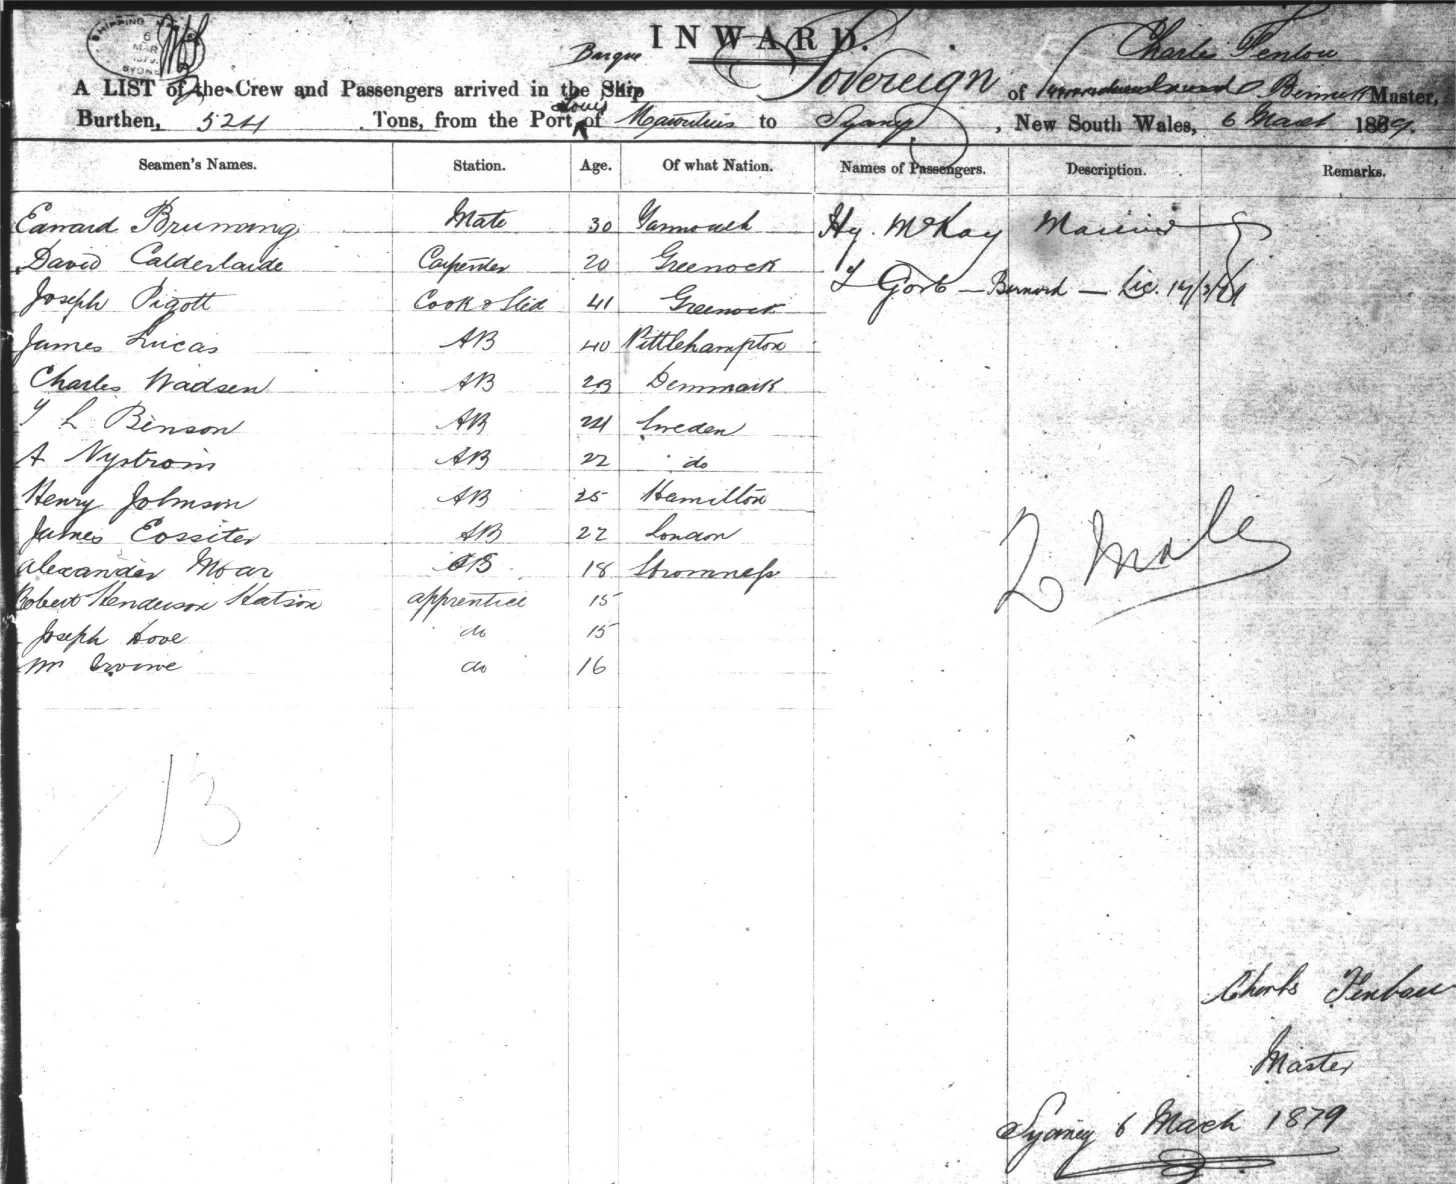 SHIPPING MASTER 6 MAR 1879 SYDNEY
INWARD.
Barque
Charles Fenton
A LIST of the Crew and Passengers arrived in the Ship Sovereign of Bennett Master,
Louis
Burthen, 524 Tons, from the Port of Mauritius to Sydney, New South Wales, 6 March 1879.
Seamen's Names. Station. Age. Of what Nation. Names of Passengers. Description. Remarks.
Edward Mate 30 Yarmouth Hy. McKay
David Calderlaide Carpenter 20 Greenock
Joseph Pigott Cook & Std 41 Greenock
James Lucas AB 40 Littlehampton
Charles Wadsen AB 23 Denmark
L Benson AB 24 Sweden
A Nystrom AB 22 do
Henry Johnson AB 25 Hamilton
James AB 22 London
Alexander Moar 18 Stromness
Robert Henderson apprentice 15
Joseph do 15
Wm Irvine do 16
2 Male
13
Charles
Master
Sydney 6 March 1879